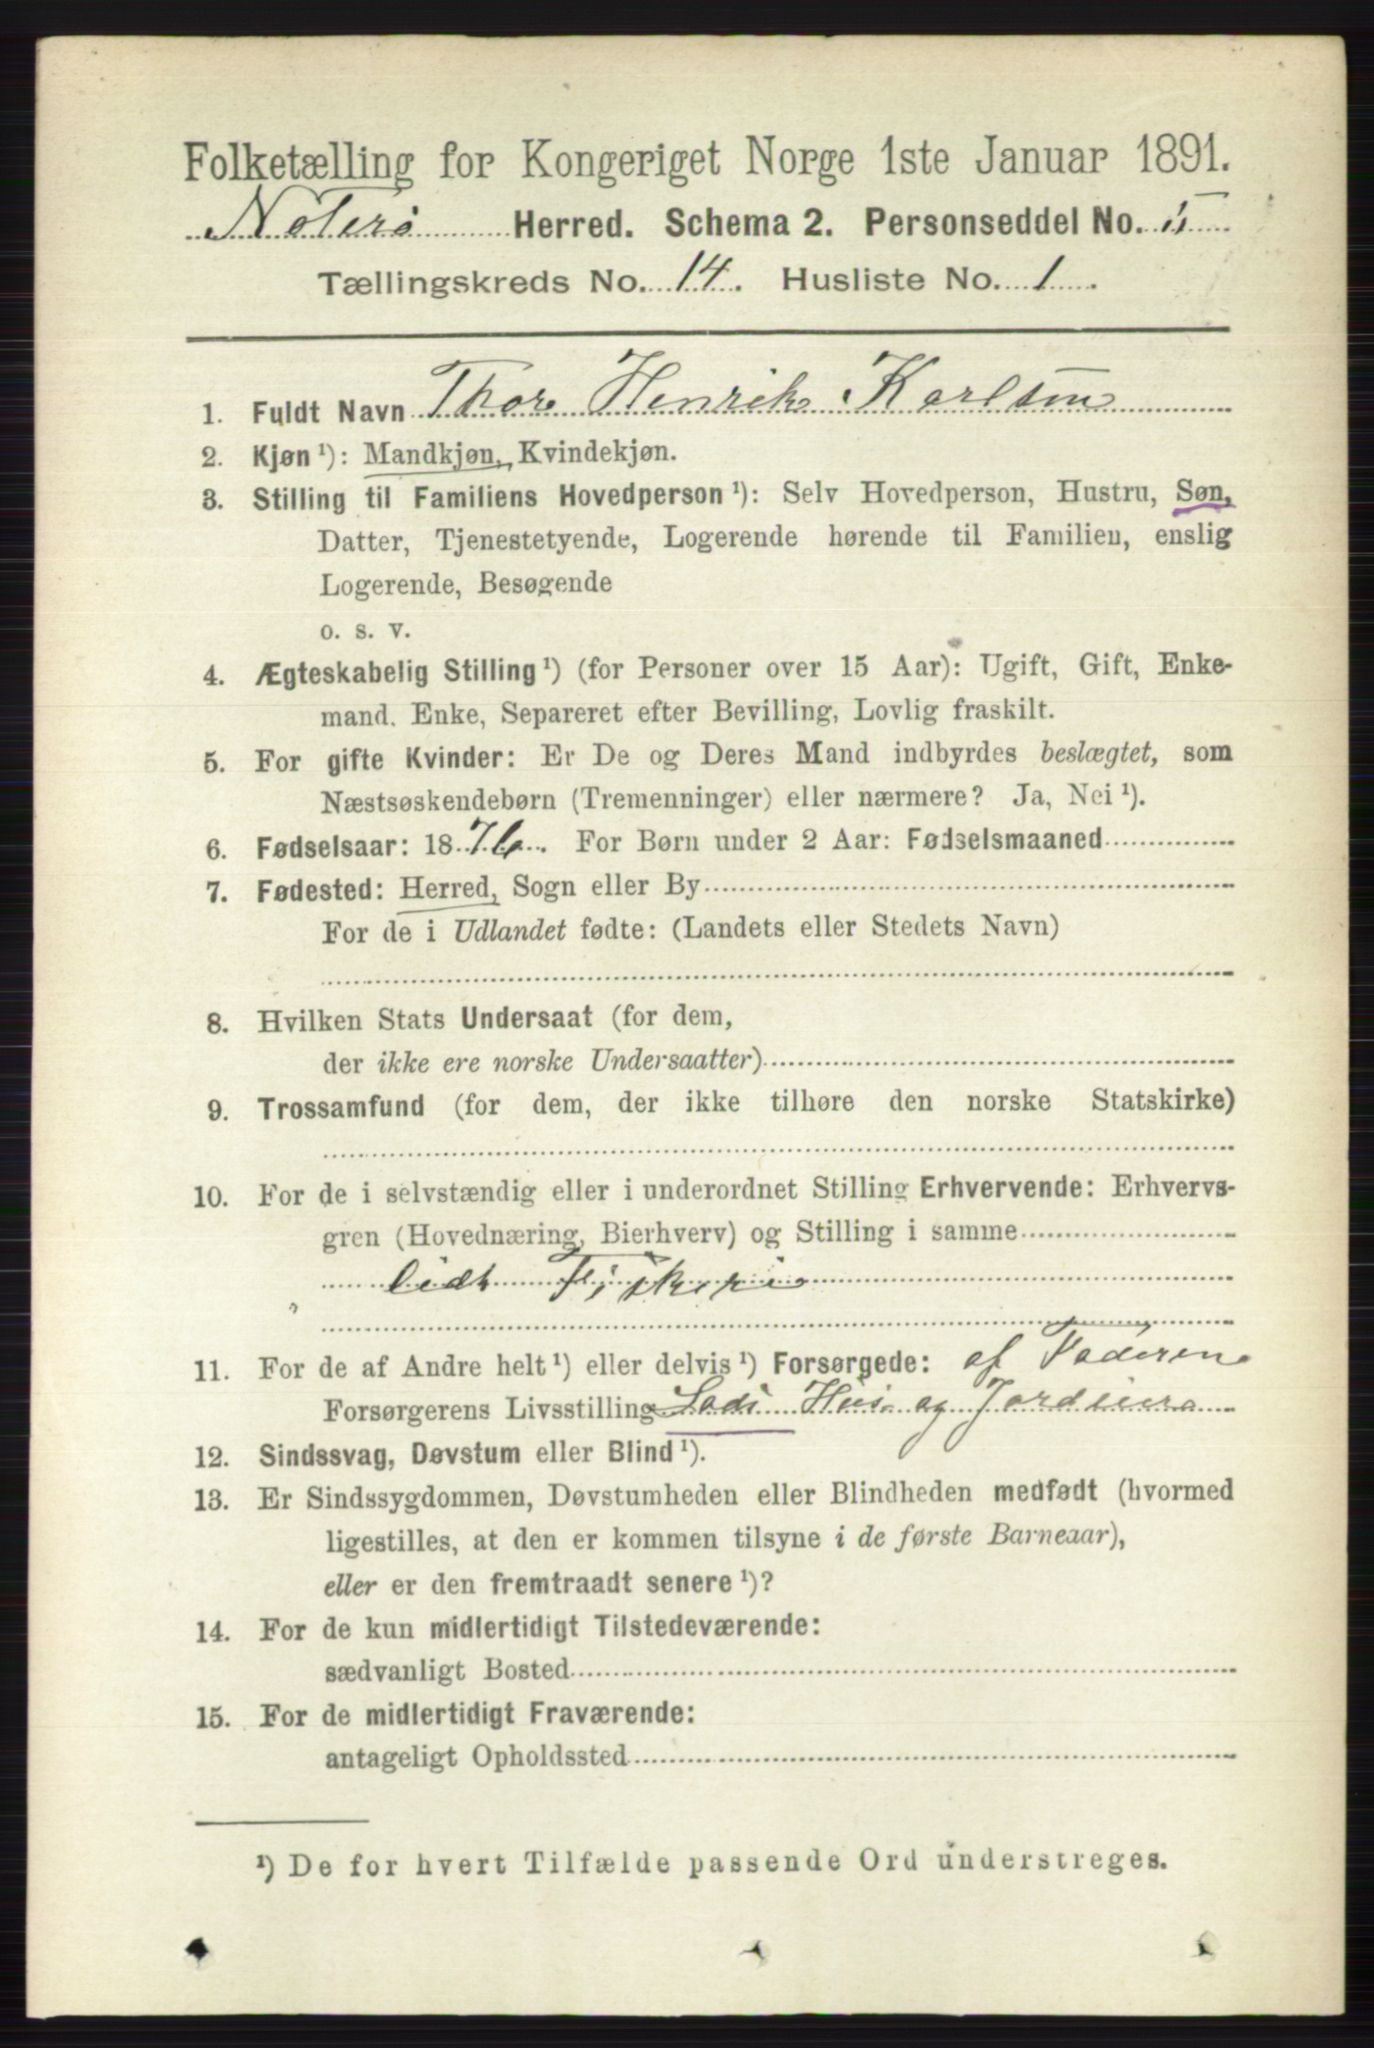 Folketælling for Kongeriget Norge 1ste Januar 1891.
Nøterø Herred. Schema 2. Personseddel No. 5
Tællingskreds No. 14. Husliste No. 1
1. Fuldt Navn Thor Henrik Karlsen
2. Kjøn ¹): Mandkjøn, Kvindekjøn.
3. Stilling til Familiens Hovedperson ¹): Selv Hovedperson, Hustru, Søn,
Datter, Tjenestetyende, Logerende hørende til Familien, enslig
Logerende, Besøgende
o. s. v.
4. Ægteskabelig Stilling ¹) (for Personer over 15 Aar): Ugift, Gift, Enke-
mand. Enke, Separeret efter Bevilling, Lovlig fraskilt.
5. For gifte Kvinder: Er De og Deres Mand indbyrdes beslægtet, som
Næstsøskendebørn (Tremenninger) eller nærmere? Ja, Nei ¹).
6. Fødselsaar: 1876. For Børn under 2 Aar: Fødselsmaaned
7. Fødested: Herred, Sogn eller By
For de i Udlandet fødte: (Landets eller Stedets Navn)
8. Hvilken Stats Undersaat (for dem,
der ikke ere norske Undersaatter)
9. Trossamfund (for dem, der ikke tilhøre den norske Statskirke)
10. For de i selvstændig eller i underordnet Stilling Erhvervende: Erhvervs-
gren (Hovednæring, Bierhverv) og Stilling i samme
lidt Fiskeri
11. For de af Andre helt ¹) eller delvis ¹) Forsørgede: af Faderen
Forsørgerens Livsstilling Lods Hus og Jordeiera
12. Sindssvag, Døvstum eller Blind ¹).
13. Er Sindssygdommen, Døvstumheden eller Blindheden medfødt (hvormed
ligestilles, at den er kommen tilsyne i de første Barneaar),
eller er den fremtraadt senere ¹)?
14. For de kun midlertidigt Tilstedeværende:
sædvanligt Bosted
15. For de midlertidigt Fraværende:
antageligt Opholdssted
¹) De for hvert Tilfælde passende Ord understreges.